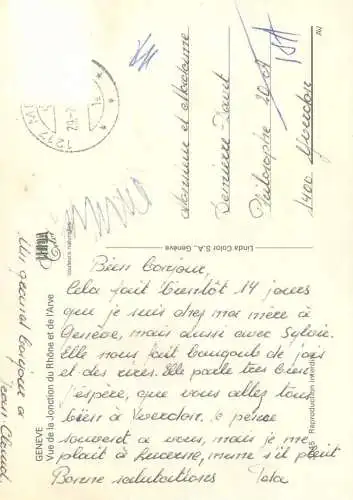 Bien bonjour,
Cela fait bientôt 14 jours
que je suis chez ma mère à
Genève, mais aussi avec Sylvie.
Elle nous fait beaucoub de joie
et des rires. Elle parle très bien
j'espère, que vous allez tous
bien à Yverdon. Je pense
souvent à vous, mais je me
plait à Lucerne, meme s'il pleut
Bonne salutations
un grand bonjour à
Jean Claud
Monsieur et Madame
Philosophe 20
1400 Yverdon
1217
Linda Color S.A., Genève
couleurs naturelles
GENEVE
Vue de la Jonction du Rhône et de l'Arve
Reproduction interdite